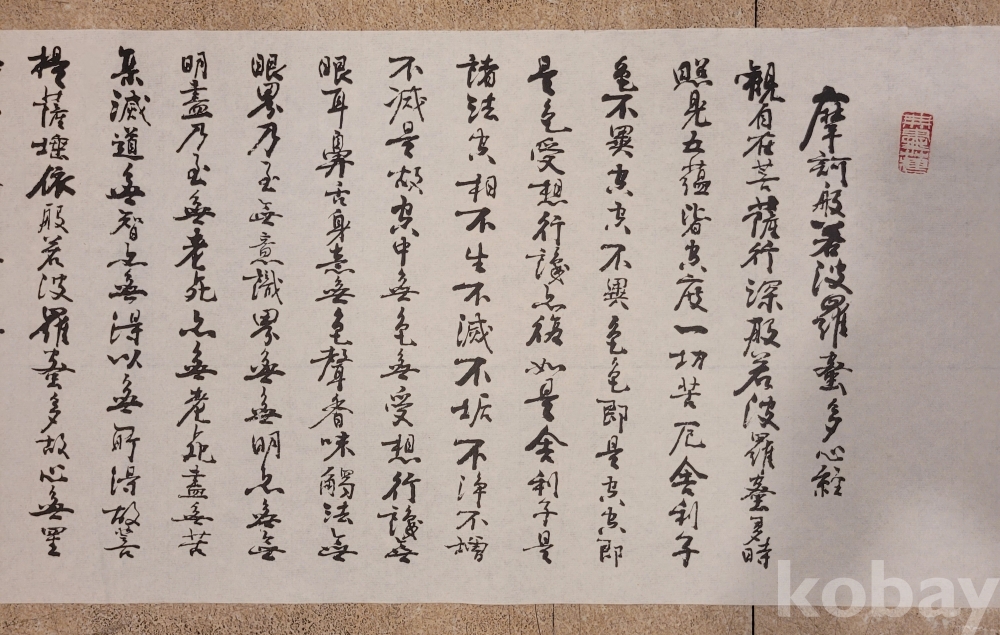 摩訶般若波羅蜜多心経
觀自在菩薩行深般若波羅蜜多時
照見五蘊皆空度一切苦厄舍利子
色不異空空不異色色即是空空即
是色受想行識亦復如是舍利子是
諸法空相不生不滅不垢不淨不增
不減是故空中無色無受想行識無
眼耳鼻舌身意無色聲香味觸法無
眼界乃至無意識界無無明亦無無
明盡乃至無老死亦無老死盡無苦
集滅道無智亦無得以無所得故菩
提薩埵依般若波羅蜜多故心無罣
kobay